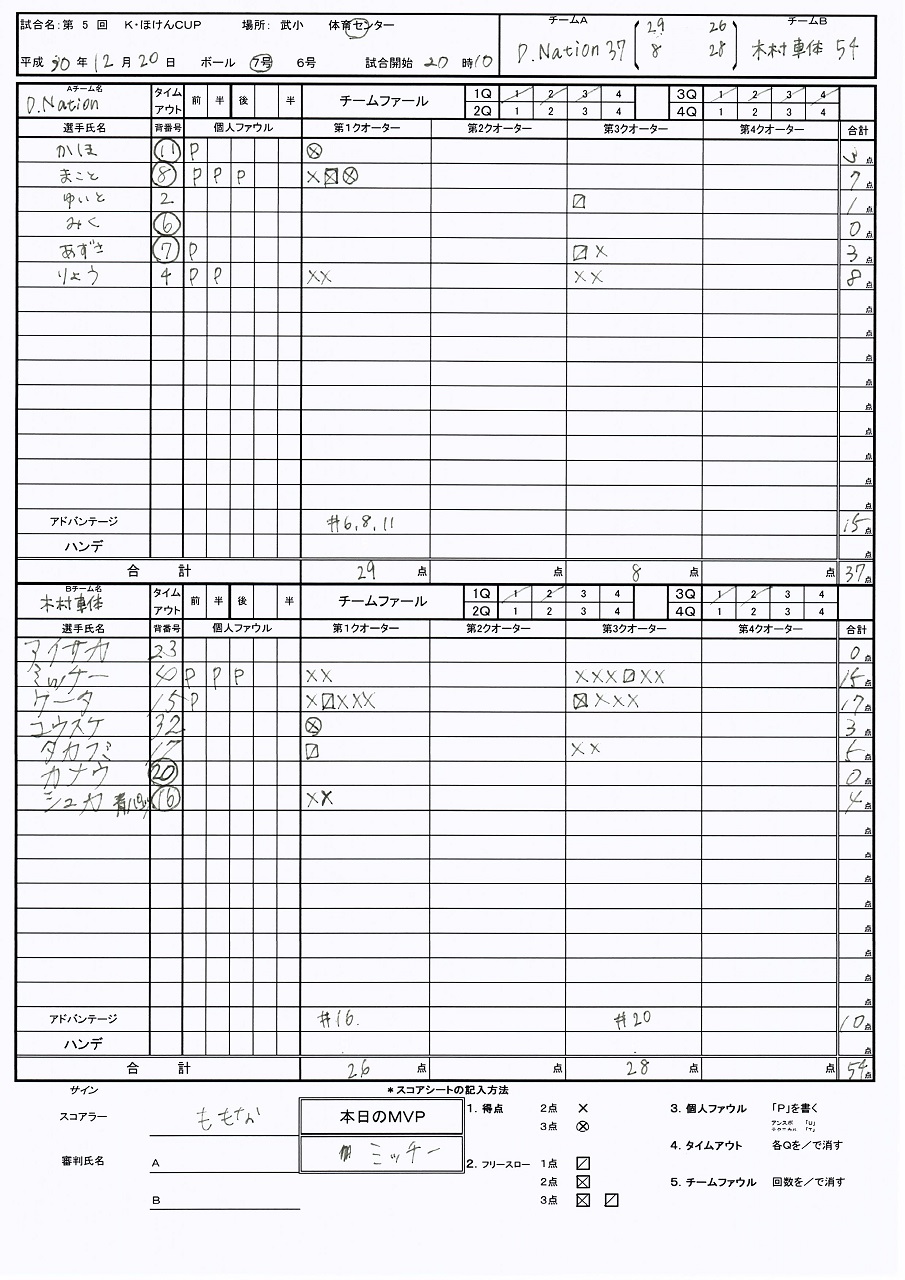 試合名:第 5 回 K・ほけんCUP 場所: 武小 体育センター
平成 30 年 12 月 20 日 ボール 7号 6号 試合開始 20 時10
チームA チームB
29 26
D.Nation 37 8 28 木村車体 54
Aチーム名 D.Nation タイムアウト 前 半 後 半 チームファール 1Q 1 2 3 4 3Q 1 2 3 4
2Q 1 2 3 4 4Q 1 2 3 4
選手氏名 背番号 個人ファウル 第1クオーター 第2クオーター 第3クオーター 第4クオーター 合計
かほ 11 P ⊗ 3点
まこと 8 P P P ×〼⊗ 7点
ゆいと 2 〼 1点
みく 6 0点
あずさ 7 P 〼 × 3点
りょう 4 P P ×× ×× 8点
点
点
点
点
点
点
点
点
点
アドバンテージ #6,8,11 15点
ハンデ 点
合 計 29 点 点 8 点 点 37点
Bチーム名 木村車体 タイムアウト 前 半 後 半 チームファール 1Q 1 2 3 4 3Q 1 2 3 4
2Q 1 2 3 4 4Q 1 2 3 4
選手氏名 背番号 個人ファウル 第1クオーター 第2クオーター 第3クオーター 第4クオーター 合計
アイサカ 23 0点
ミッチー 40 P P P ×× ×××〼×× 15点
ケータ 15 P ×〼××× ⊠××× 17点
ユウスケ 32 ⊗ 3点
タカフミ 17 〼 ×× 5点
カナウ 20 0点
シュカ 16 ×× 4点
点
点
点
点
点
点
点
点
アドバンテージ #16. #20 10点
ハンデ 点
合 計 26 点 点 28 点 点 54点
サイン *スコアシートの記入方法
スコアラー ももな 本日のMVP 1. 得点 2点 × 3. 個人ファウル 「P」を書く
3点 ⊗ アンスポ 「U」
テクニカル 「T」
ミッチー 4. タイムアウト 各Qを/で消す
審判氏名 A 2. フリースロー 1点 〼
2点 ⊠ 5. チームファウル 回数を/で消す
B 3点 ⊠ 〼